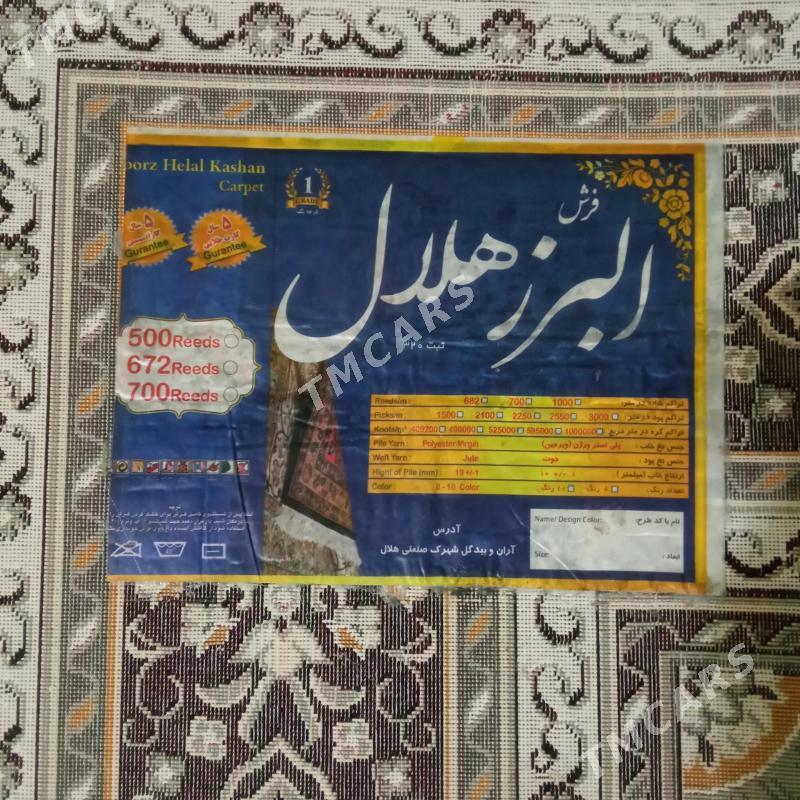 TMCARS
orz Helal Kashan
Carpet
1
GRADE
درجه یک
فرش
البرز هلال
ثبت ۳۲۰
۵ سال
Gurantee
۵ سال
Gurantee
500 Reeds
672 Reeds
700 Reeds
TMCARS
Reeds/m: 682 700 1000
Picks/m: 1500 2100 2250 2550 3000
Knots/m² 409200 525000 595000 1000000 تراکم گره در متر مربع
Pile Yarn: Polyester Virgin پلی استر ویرژن (ویرجین) جنس نخ خاب:
Weft Yarn: Jute جوت جنس نخ پود:
Hight of Pile (mm): 10 +/-1 ۱۰ +/- ۱ ارتفاع خاب (میلیمتر)
Color: 8 - 10 Color ۱۰ رنگ ۸ رنگ تعداد رنگ:
توجه
آدرس
آران و بیدگل شهرک صنعتی هلال
Name/ Design Color: نام یا کد طرح:
Size: ابعاد:
TMCARS